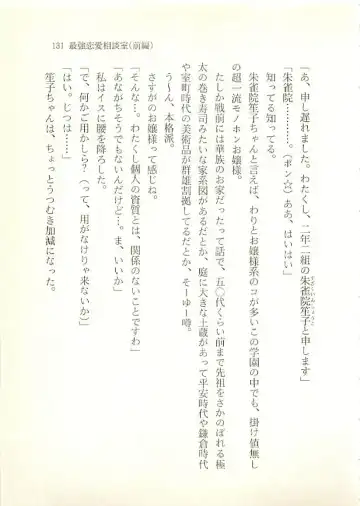 131 最強恋愛相談室(前編)
「あ、申し遅れました。わたくし、二年二組の朱雀院笙子と申します」
「朱雀院………。(ポンッ)ああ、はいはい」
知ってる知ってる。
朱雀院笙子ちゃんと言えば、わりとお嬢様系のコが多いこの学園の中でも、掛け値無し
の超一流モノホンお嬢様。
たしか戦前には華族のお家だったって話で、五〇代くらい前まで先祖をさかのぼれる極
太の巻き寿司みたいな家系図があるだとか、庭に大きな土蔵があって平安時代や鎌倉時代
や室町時代の美術品が群雄割拠してるだとか、そーゆー噂。
う〜ん、本格派。
さすがのお嬢様って感じね。
「そんな…。わたくし個人の資質とは、関係のないことですわ」
「あながちそうでもないんだけど…。ま、いいか」
私はイスに腰を降ろした。
「で、何かご用かしら?(って、用がなけりゃ来ないか)」
「はい。じつは……」
笙子ちゃんは、ちょっとうつむき加減になった。